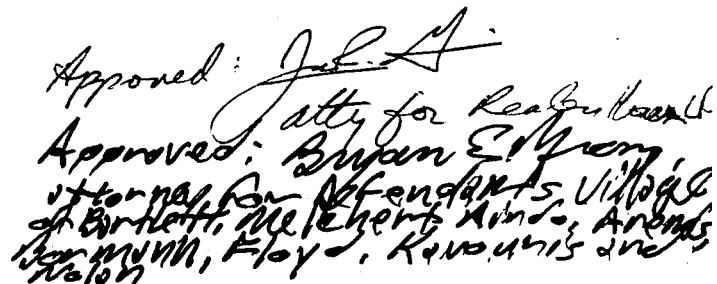 Approved:
atty for
Approved: Bryan E.
attorney for defendants Village
of Bartlett, Melchert, Kinda, Arends,
Floyd, Kavouris and
Nolan